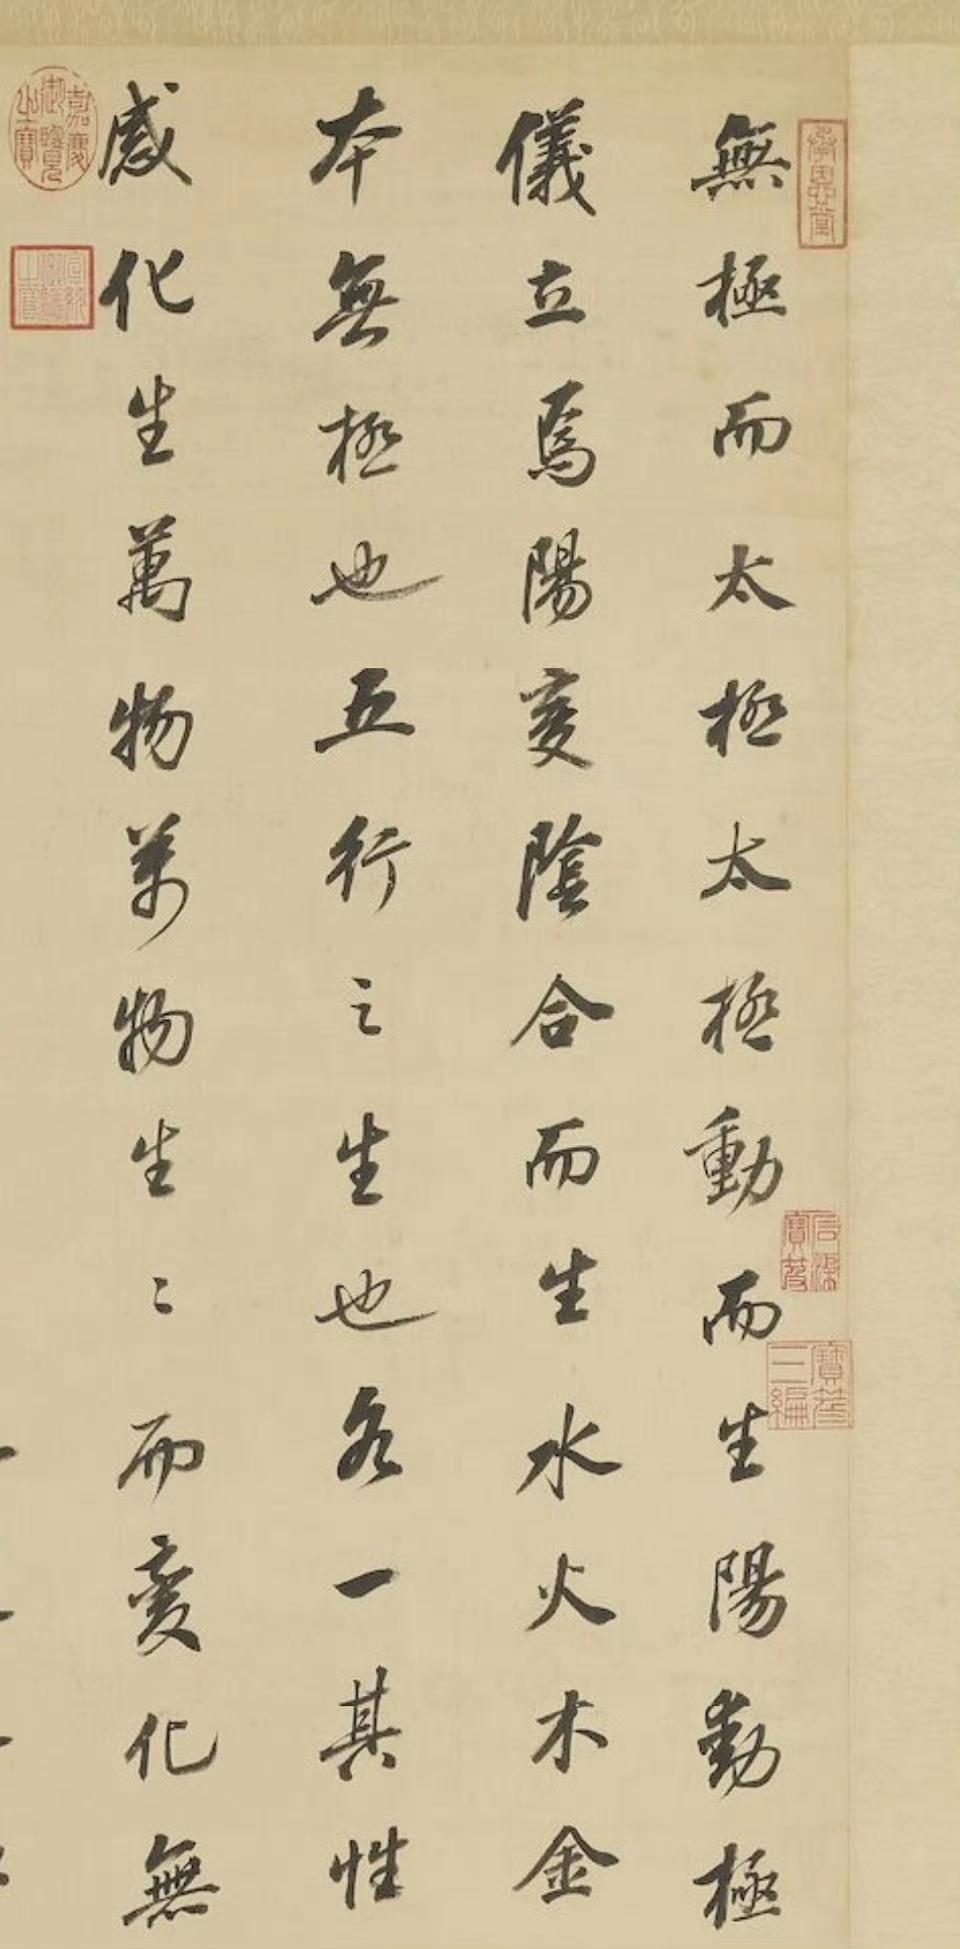 無極而太極太極動而生陽動極
儀立焉陽變陰合而生水火木金
本無極也五行之生也各一其性
感化生萬物萬物生〻而變化無
承恩堂
石渠寶笈
寶笈三編
嘉慶御覽之寶
宣統御覽之寶